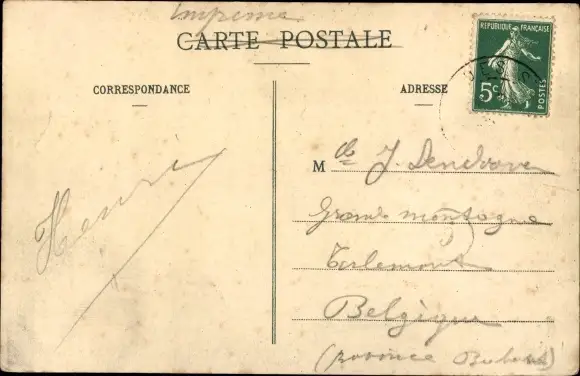 Imprimé
CARTE POSTALE
REPUBLIQUE FRANÇAISE
5c
POSTES
CORRESPONDANCE
ADRESSE
Henri
Mlle J.
Grande montagne
Tirlemont
Belgique
(province